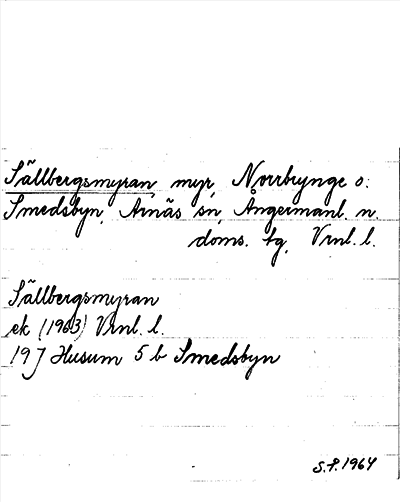 Sällbergsmyran, myr, Norrbynge o.
Smedsbyn, Arnäs sn, Ångermanl. n.
doms. tg, Vrnl. l.
Sällbergsmyran
ek (1963) Vrnl. l.
19 J Husum 5 b Smedsbyn
S.F. 1964